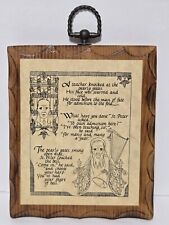 A teacher knocked at the
pearly gates
His face was scarred and
old.
He stood before the man of fate
for admission to the fold.
"What have you done" St. Peter
asked
"To gain admission here?"
"I've been teaching, sir," he
said,
"for many and many
a year."
The pearly gates swung
open wide,
St. Peter touched
the bell.
"Come in," he said,
"and choose
your harp
You've had
your share
of hell."